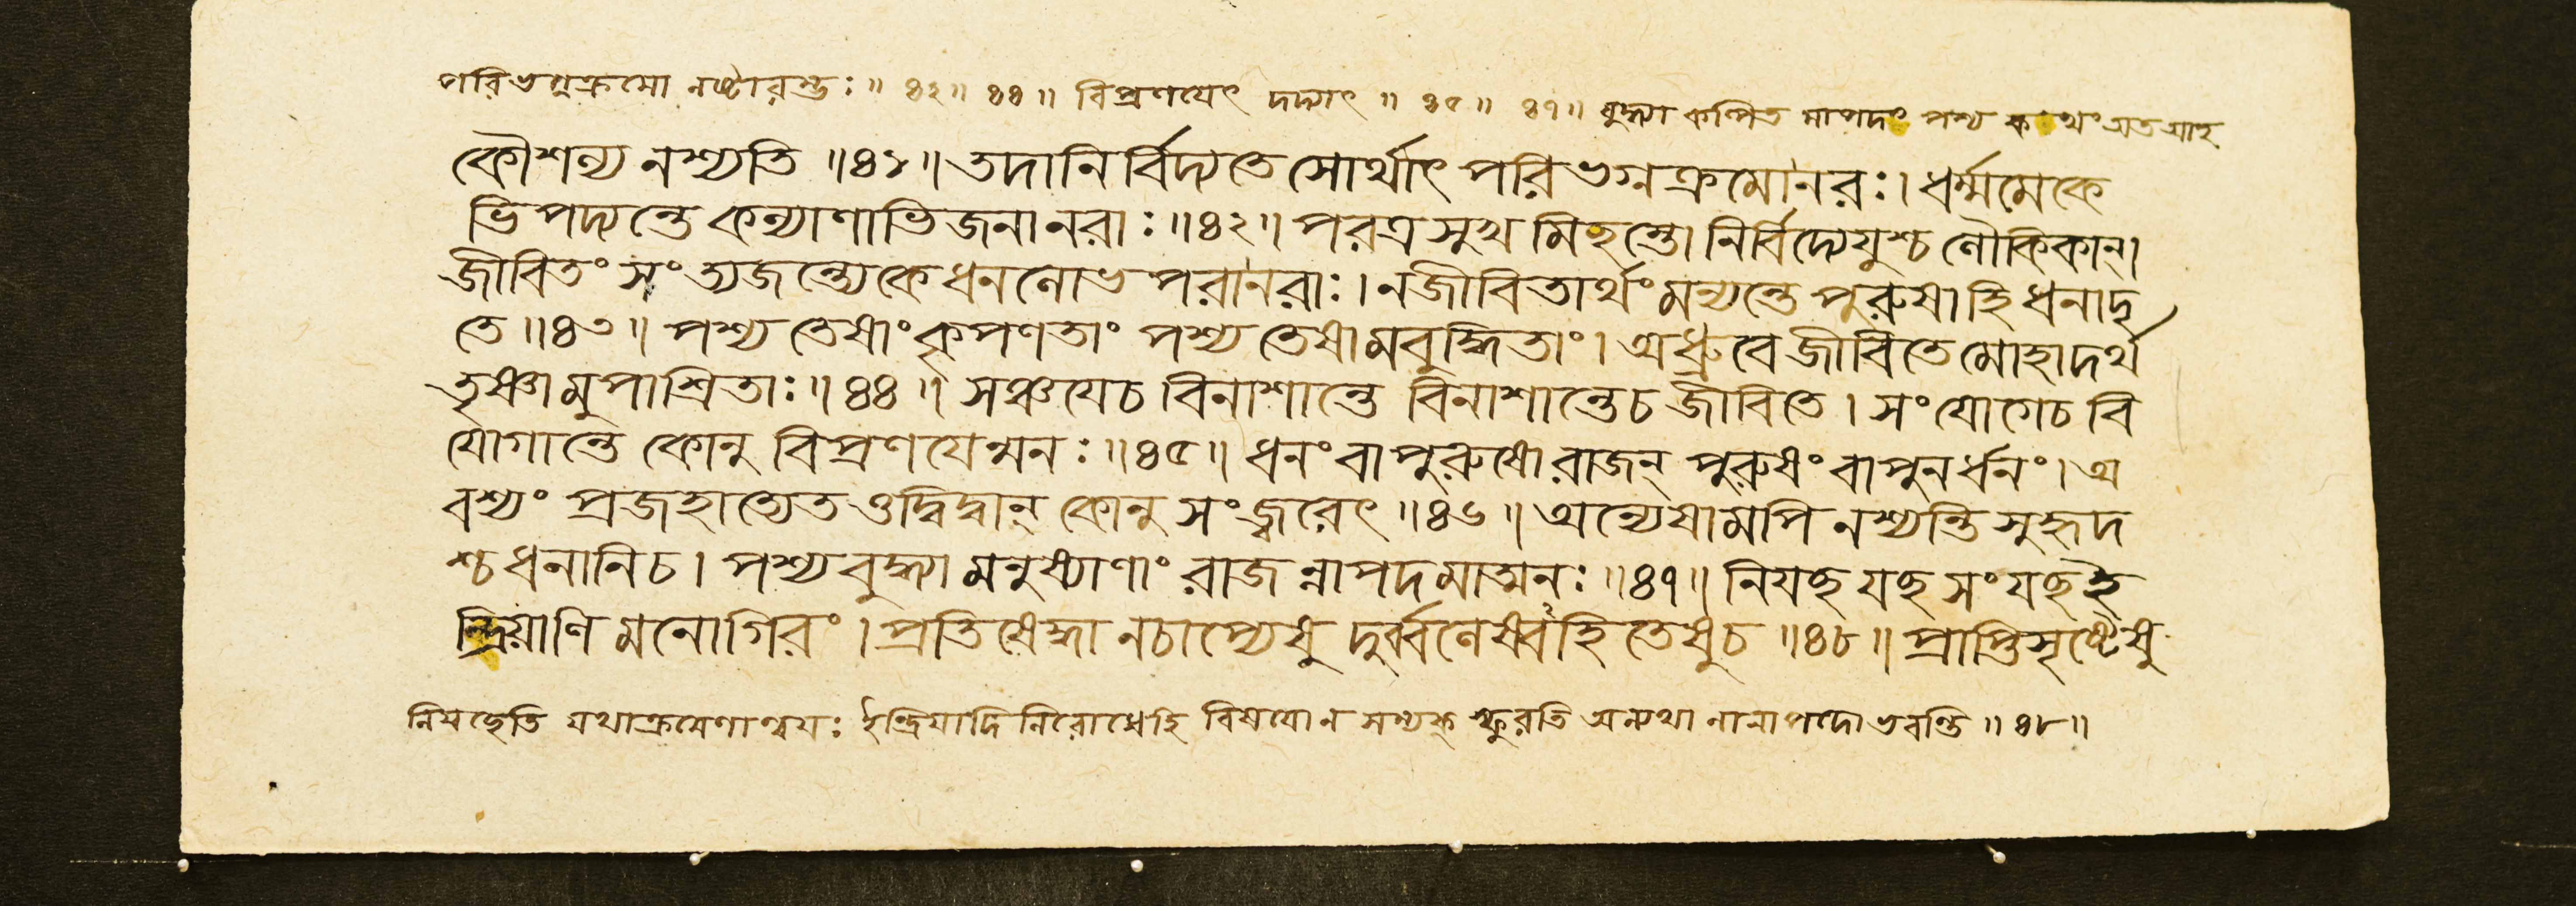 পরিভগ্নক্রমো নষ্টারম্ভঃ ॥ ৪২ ॥ ৪৪ ॥ বিপ্রণযেৎ দদ্যাৎ ॥ ৪৫ ॥ ৪৭ ॥ বুদ্ধ্যা কল্পিত মাপদং পশ্য কথং অত আহ
কৌশল্য নশ্যতি ॥ ৪১ ॥ তদানির্বিদ্যতে সোর্থাৎ পরিভগ্নক্রমোনরঃ । ধর্ম্মমেকে
ভিপদ্যন্তে কল্যাণাভিজনানরাঃ ॥ ৪২ ॥ পরত্রসুখমিছন্তো নির্বিদ্যেযুশ্চ লৌকিকান্ ।
জীবিতং সংত্যজন্ত্যেকে ধনলোভপরানরাঃ । নজীবিতার্থং মন্যন্তে পুরুষাহিধনাদৃ
তে ॥ ৪৩ ॥ পশ্য তেষাং কৃপণতাং পশ্য তেষামবুদ্ধিতাং । অধ্রুবে জীবিতে মোহাদর্থ
তৃষ্ণামুপাশ্রিতাঃ ॥ ৪৪ ॥ সঞ্চযেচ বিনাশান্তে বিনাশান্তেচ জীবিতে । সংযোগেচ বি
যোগান্তে কোনু বিপ্রণযেন্মনঃ ॥ ৪৫ ॥ ধনং বাপুরুষোরাজন্ পুরুষং বাপুনর্ধনং । অ
বশ্যং প্রজহাত্যেতত্তদ্বিদ্বান্ কোনু সংজ্বরেৎ ॥ ৪৬ ॥ অন্যেষামপি নশ্যন্তি সুহৃদ
শ্চধনানিচ । পশ্যবুদ্ধ্যা মনুষ্যাণাং রাজন্নাপদমাত্মনঃ ॥ ৪৭ ॥ নিযছ যছ সংযছ ই
ন্দ্রিয়াণি মনোগিরং । প্রতিষেদ্ধা নচাপ্যেষু দুর্ব্বলেষ্বহিতেষুচ ॥ ৪৮ ॥ প্রাপ্তিসৃষ্টেষু
নিযছেতি যথাক্রমেণান্বযঃ ইন্দ্রিযাদি নিরোধেহি বিষযোন সম্যক্ স্ফুরতি অন্যথা নানাপদো ভবন্তি ॥ ৪৮ ॥